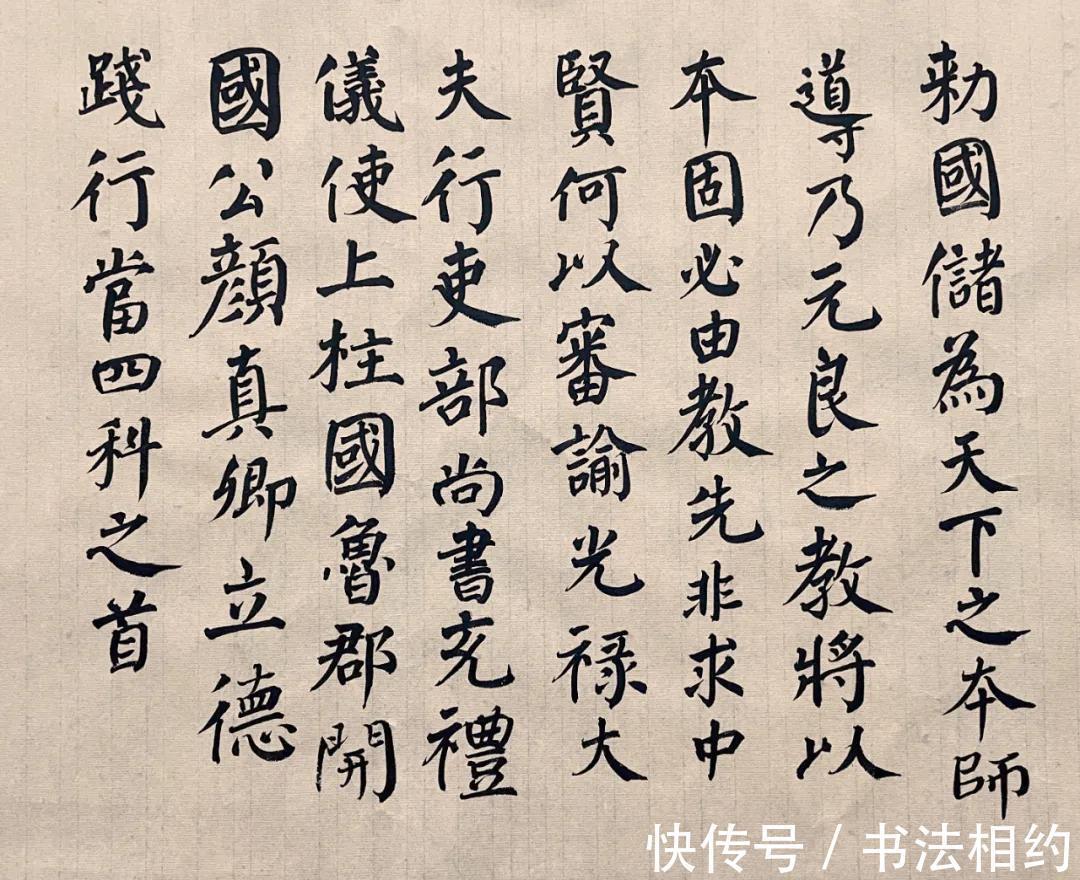 勑國儲為天下之本師
導乃元良之教將以
本固必由教先非求中
賢何以審諭光祿大
夫行吏部尚書充禮
儀使上柱國魯郡開
國公顏真卿立德
踐行當四科之首
快传号 / 书法相约